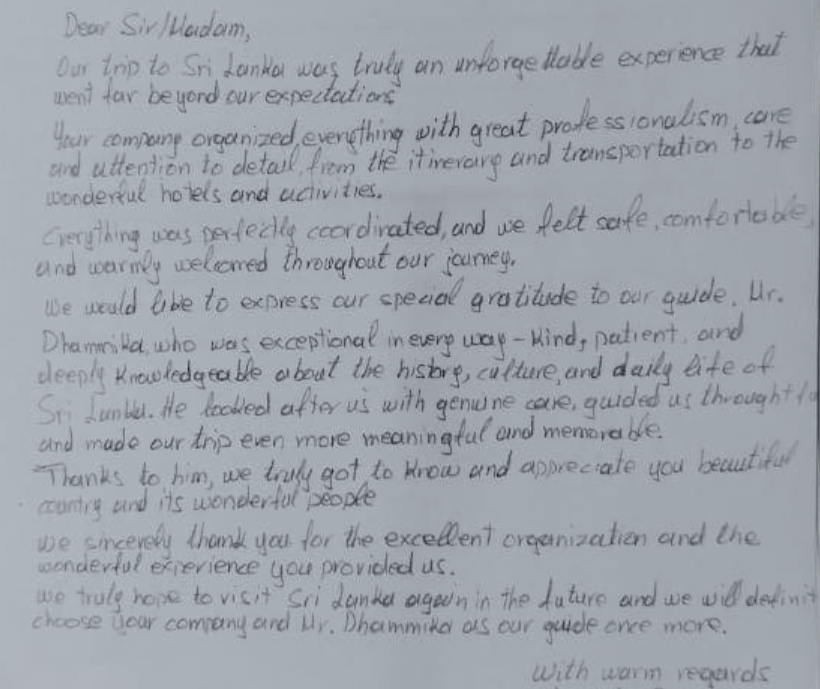 Dear Sir/Madam,
Our trip to Sri Lanka was truly an unforgettable experience that
went far beyond our expectations
Your company organized, everything with great professionalism, care
and attention to detail, from the itinerary and transportation to the
wonderful hotels and activities.
Everything was perfectly coordinated, and we felt safe, comfortable,
and warmly welcomed throughout our journey.
We would like to express our special gratitude to our guide, Mr.
Dhammika, who was exceptional in every way - kind, patient, and
deeply knowledgeable about the history, culture, and daily life of
Sri Lanka. He looked after us with genuine care, guided us throught
and made our trip even more meaningful and memorable.
Thanks to him, we truly got to know and appreciate you beautiful
country and its wonderful people
We sincerely thank you for the excellent organization and the
wonderful experience you provided us.
We truly hope to visit Sri Lanka again in the future and we will definit
choose your company and Mr. Dhammika as our guide once more.
With warm regards